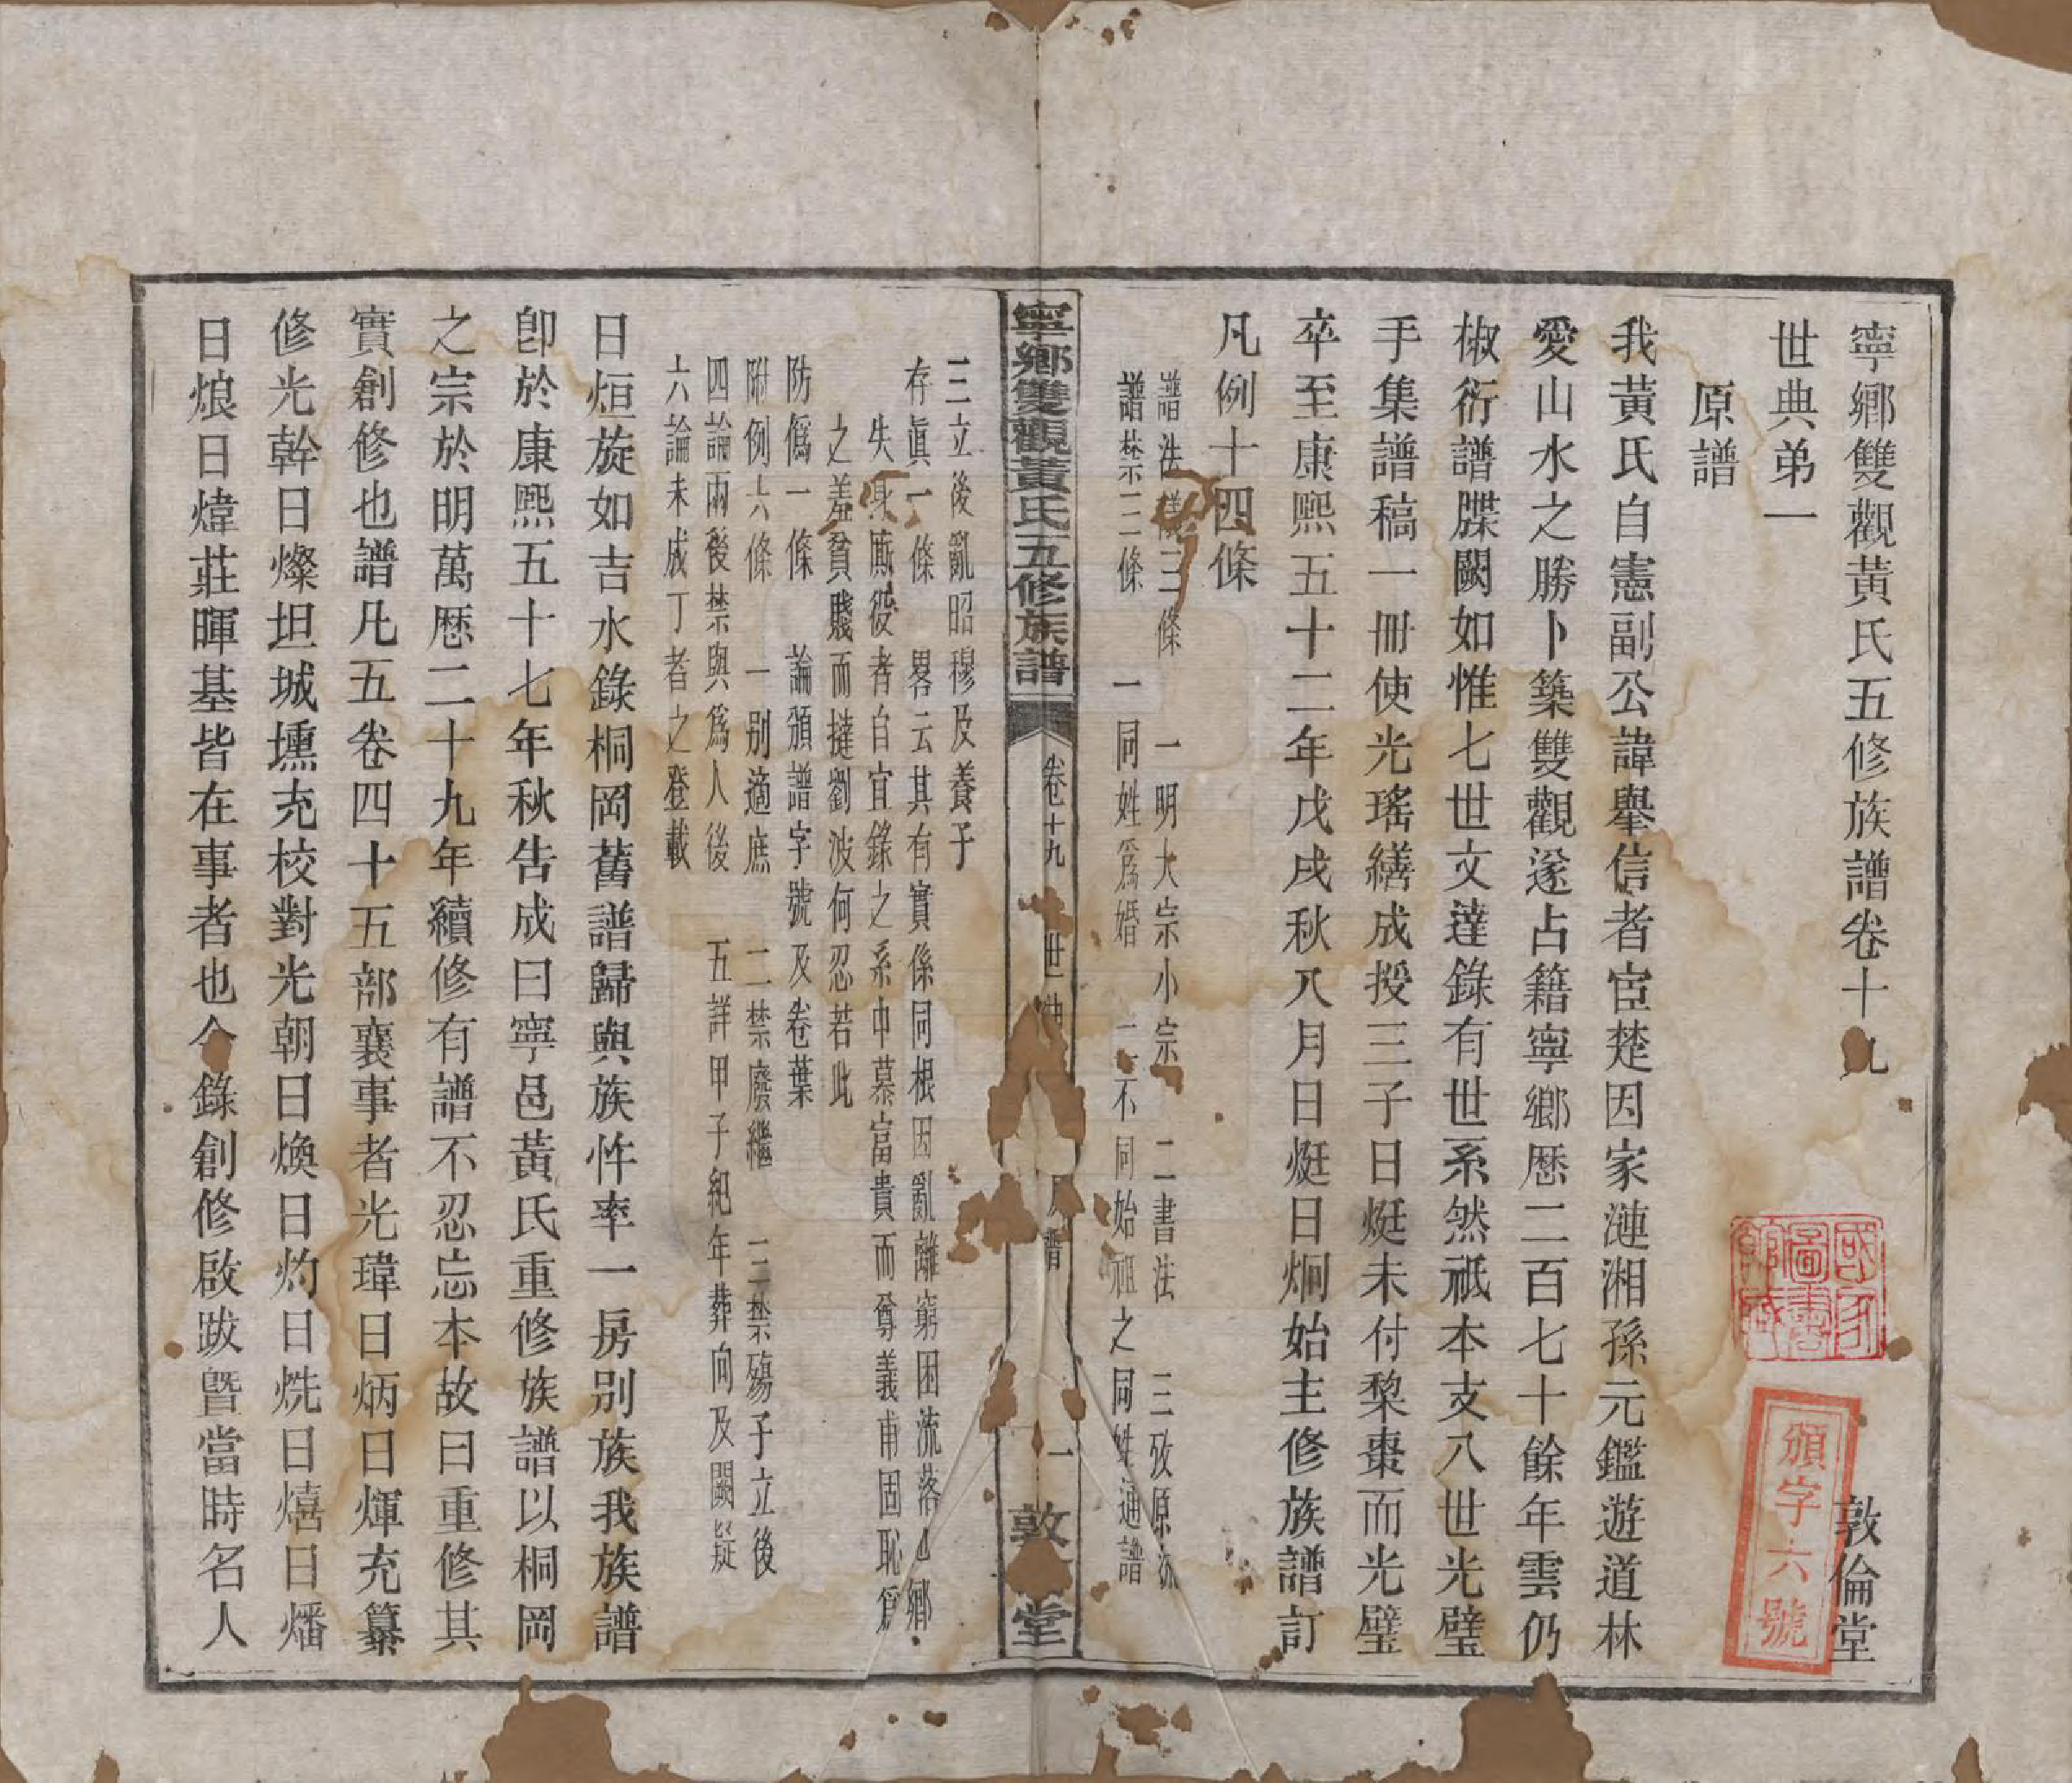 寧鄉雙觀黃氏五修族譜卷十九
敦倫堂
世典弟一
原譜
我黃氏自憲副公諱舉信者宦楚因家漣湘孫元鑑遊道林
愛山水之勝卜築雙觀遂占籍寧鄉歷二百七十餘年雲仍
椒衍譜牒闕如惟七世文達錄有世系然祇本支八世光璧
手集譜稿一冊使光瑤繕成授三子日烶未付棃棗而光璧
卒至康熙五十二年戊戌秋八月日烶日炯始主修族譜訂
凡例十四條
譜法 三條 一明大宗小宗 二書法 三攷原流
譜禁三條 一同姓爲婚 二不同始祖之同姓通譜
寧鄉雙觀黃氏五修族譜 卷十九 世 一 敦 堂
三立後亂昭穆及養子
存眞一條 畧云其有實係同根因亂離窮困流落 鄉
失身廝役者自宜錄之系中慕富貴而尊義甫固恥爲
之羞貧賤而撻劉波何忍若此
防僞一條 論頒譜字號及卷葉
附例六條 一别適庶 二禁廢繼 三禁殤子立後
四論兩後禁與爲人後 五詳甲子紀年葬向及闕疑
六論未成丁者之登載
日烜旋如吉水錄桐岡舊譜歸與族忤率一房别族我族譜
卽於康熙五十七年秋告成曰寧邑黃氏重修族譜以桐岡
之宗於明萬歷二十九年續修有譜不忍忘本故曰重修其
實創修也譜凡五卷四十五部襄事者光瑋日炳日煇充纂
修光幹日燦坦城壎充校對光朝日煥日灼日烍日熺日燔
日烺日煒莊暉基皆在事者也今錄創修啟跋曁當時名人
國家圖書館藏
頒字六號